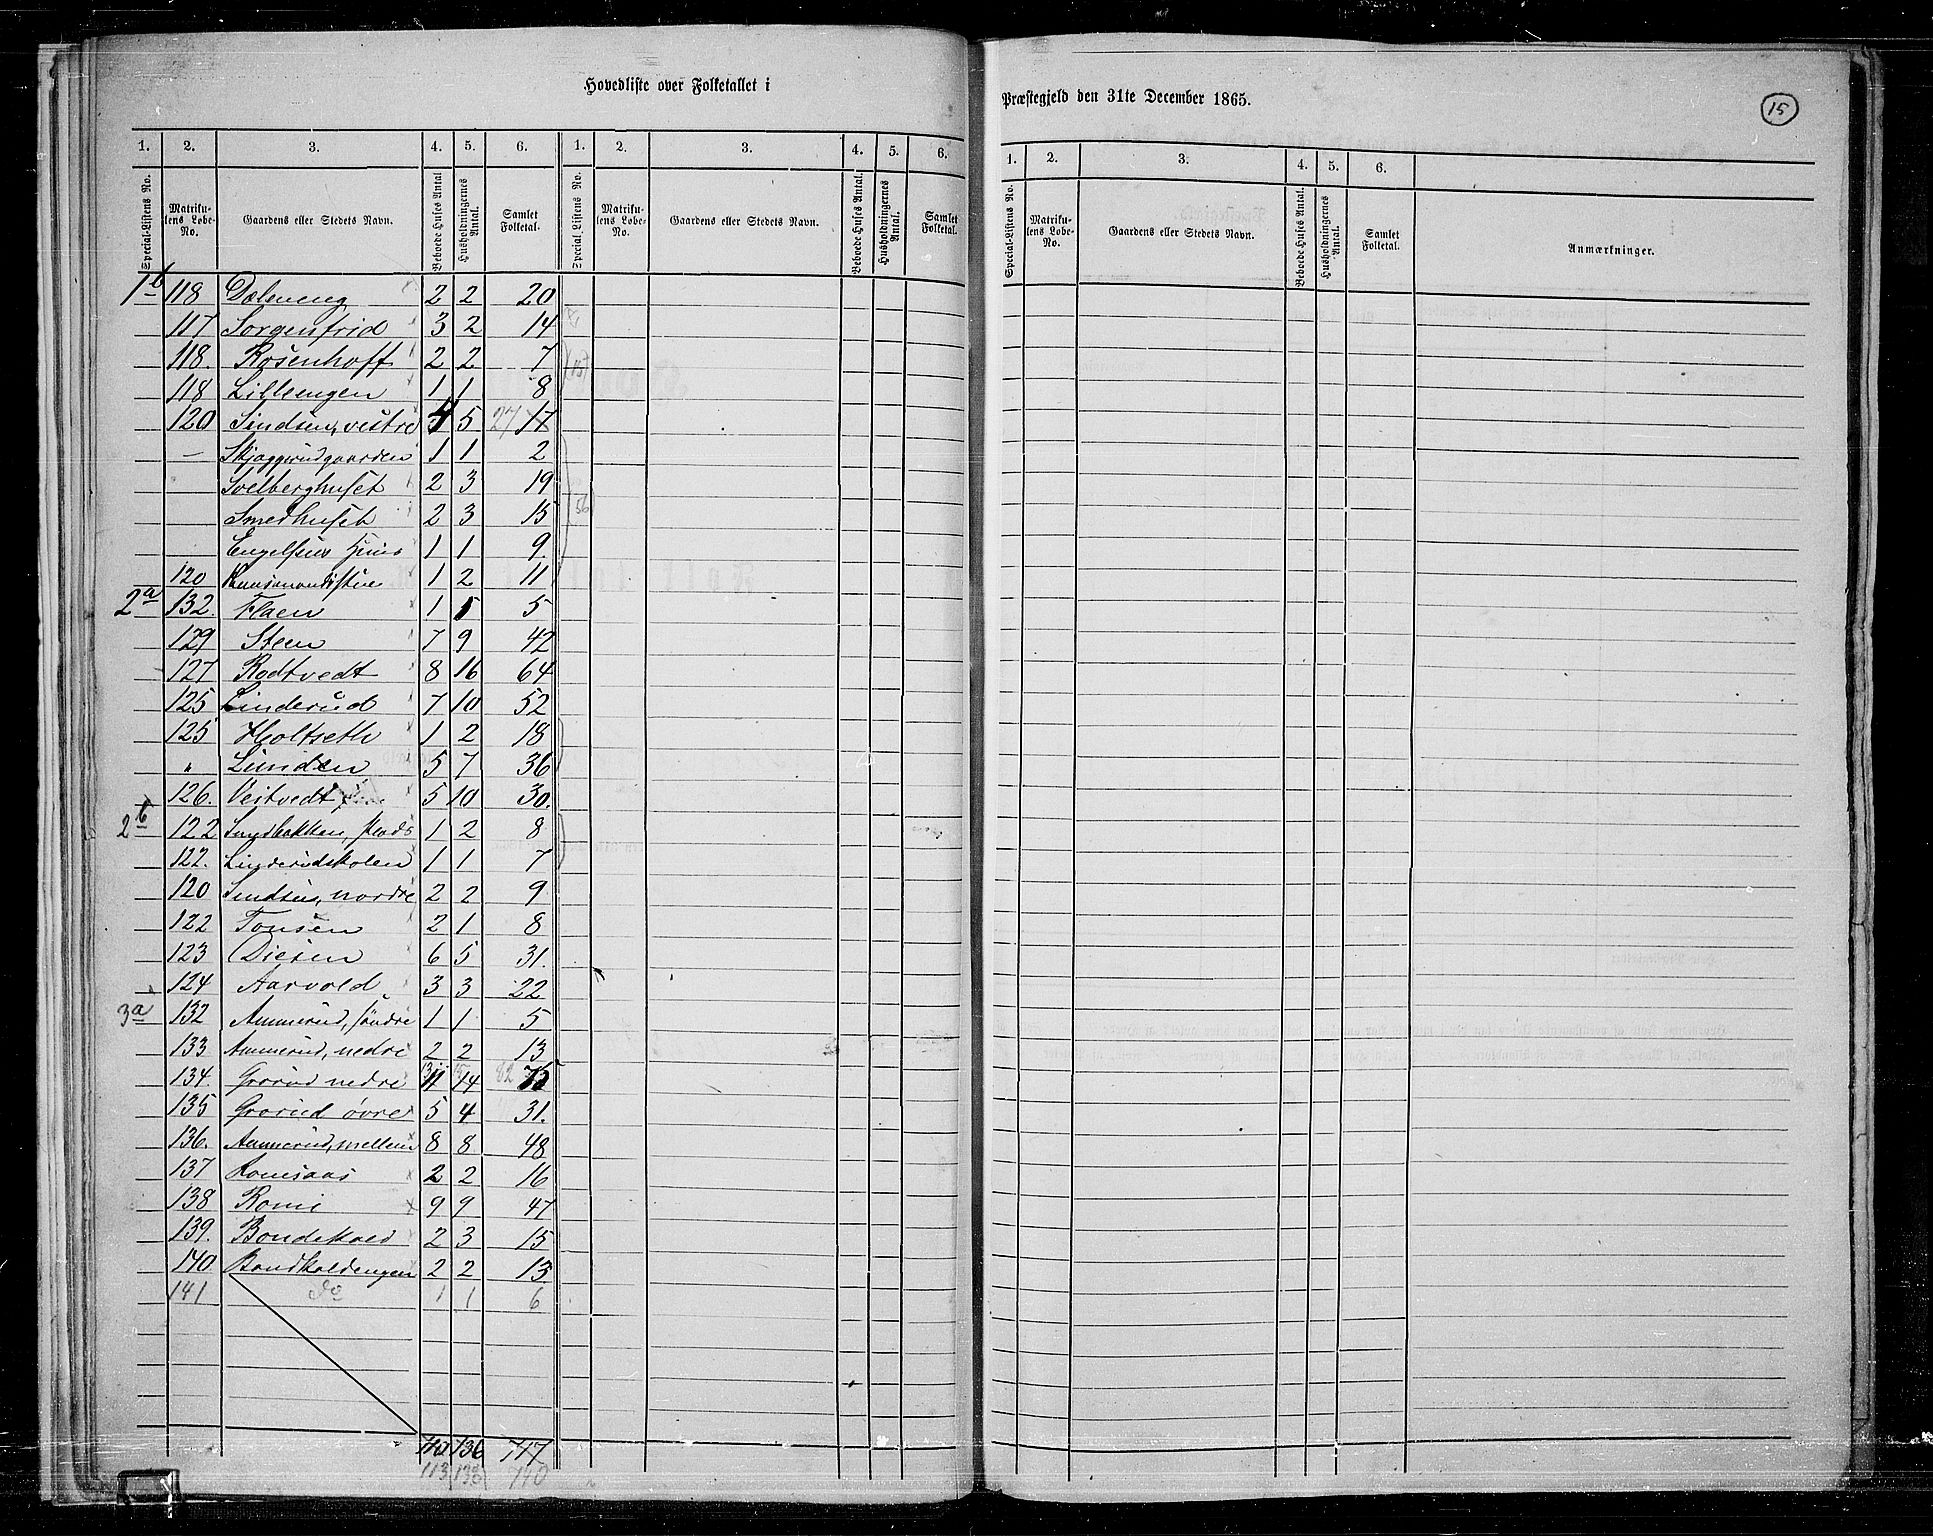 Hovedliste over Folketallet i
Præstegjeld den 31te December 1865.
15
1. 2. 3. 4. 5. 6. 1. 2. 3. 4. 5. 6.
1. 2. 3. 4. 5. 6.
Special-Listens No. Matrikulens Løbe-No. Gaardens eller Stedets Navn. Beboede Huses Antal Husholdningernes Antal. Samlet Folketal. Special-Listens No. Matrikulens Løbe-No. Gaardens eller Stedets Navn. Beboede Huses Antal. Husholdningernes Antal. Samlet Folketal.
Special-Listens No. Matrikulens Løbe-No. Gaardens eller Stedets Navn. Beboede Huses Antal. Husholdningernes Antal. Samlet Folketal. Anmærkninger.
1b 118 Dæleneng 2 2 20
117 Sorgenfrid 3 2 14
118. Rosenhoff 2 2 7
118 Lilleengen 1 1 8
120 Sindsen, vestre 4 5 27 17
— Skjaggerudgaarden 1 1 2
Svelberghuset 2 3 19
Smedhuset 2 3 15 56
Engelsens Huus 1 1 9.
120 1 2 11
2a 132. Flaen 1 5 5
129 Steen 7 9 42
127 Rødtvedt 8 16 64
125 Linderud 7 10 52
125 Holtseth 1 2 18
" Lunden 5 7 36
126. Veitvedt 5 10 30.
2b 122 Sandbakken, Plads 1 2 8
122. Linderudskolen 1 1 7
120 Sindsen, nordre 2 2 9
122 Tonsen 2 1 8
123 Disen 6 5 31.
124 Aarvold 3 3 22
3a 132 Ammerud, søndre 1 1 5
133 Ammerud, nedre 2 2 13
134. Grorud nedre 11 14 82 75
135 Grorud øvre 5 4 31.
136. Ammerud, mellem 8 8 48
137 Romsaas 2 2 16
138 Romi 9 9 47
139. Bondekald 2 3 15
140. Bondkaldengen 2 2 13
141 do 1 1 6
110 136 717
113 133 740